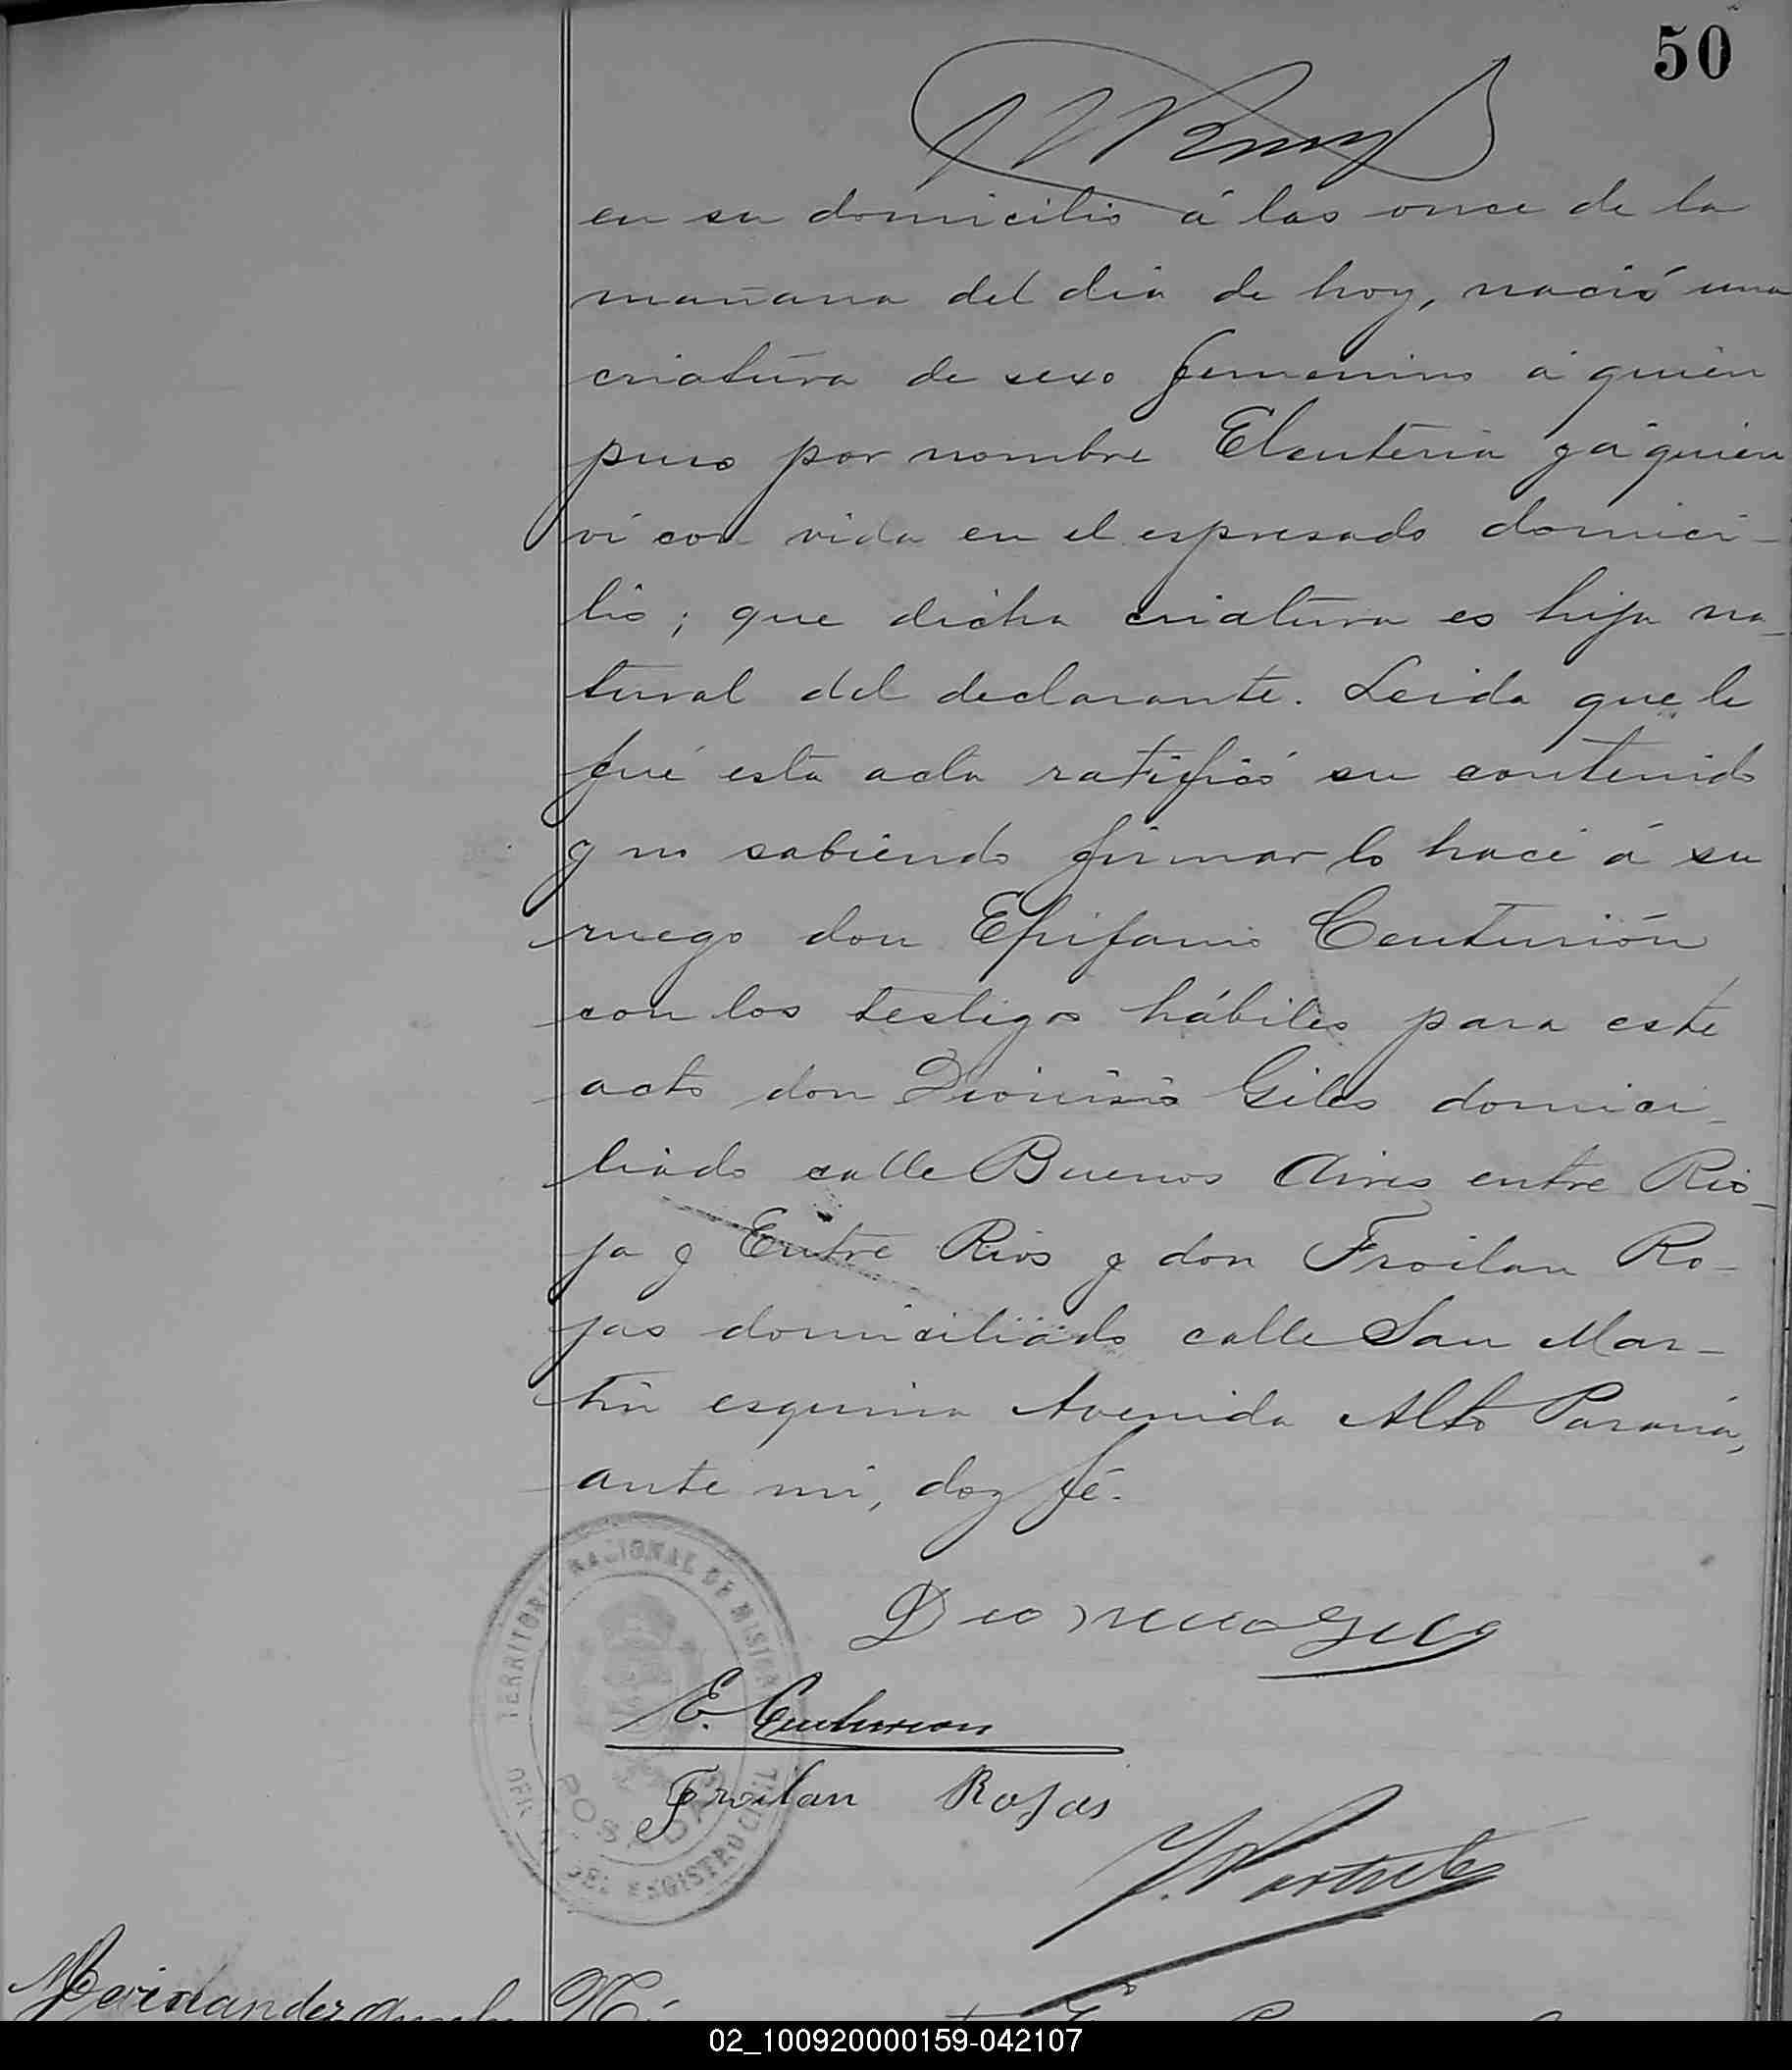 50
en su domicilio á las once de la
mañana del dia de hoy, nació una
criatura de sexo femenino á quien
puso por nombre Eleuteria y á quien
ví con vida en el espresado domici-
lio; que dicha criatura es hija na-
tural del declarante. Leida que le
fué esta acta ratificó su contenido
y no sabiendo firmar lo hace á su
ruego don Epifanio Centurión
con los testigos hábiles para este
acto don Dionisio Giles domici-
liado calle Buenos Aires entre Rio-
ja y Entre Rios y don Froilan Ro-
jas domiciliado calle San Mar-
tin esquina Avenida Alto Paraná,
ante mi, doy fé.
TERRITORIO NACIONAL DE MISIONES
E. Centurion
Froilan Rojas
POSADAS
DEL REGISTRO CIVIL
02_100920000159-042107